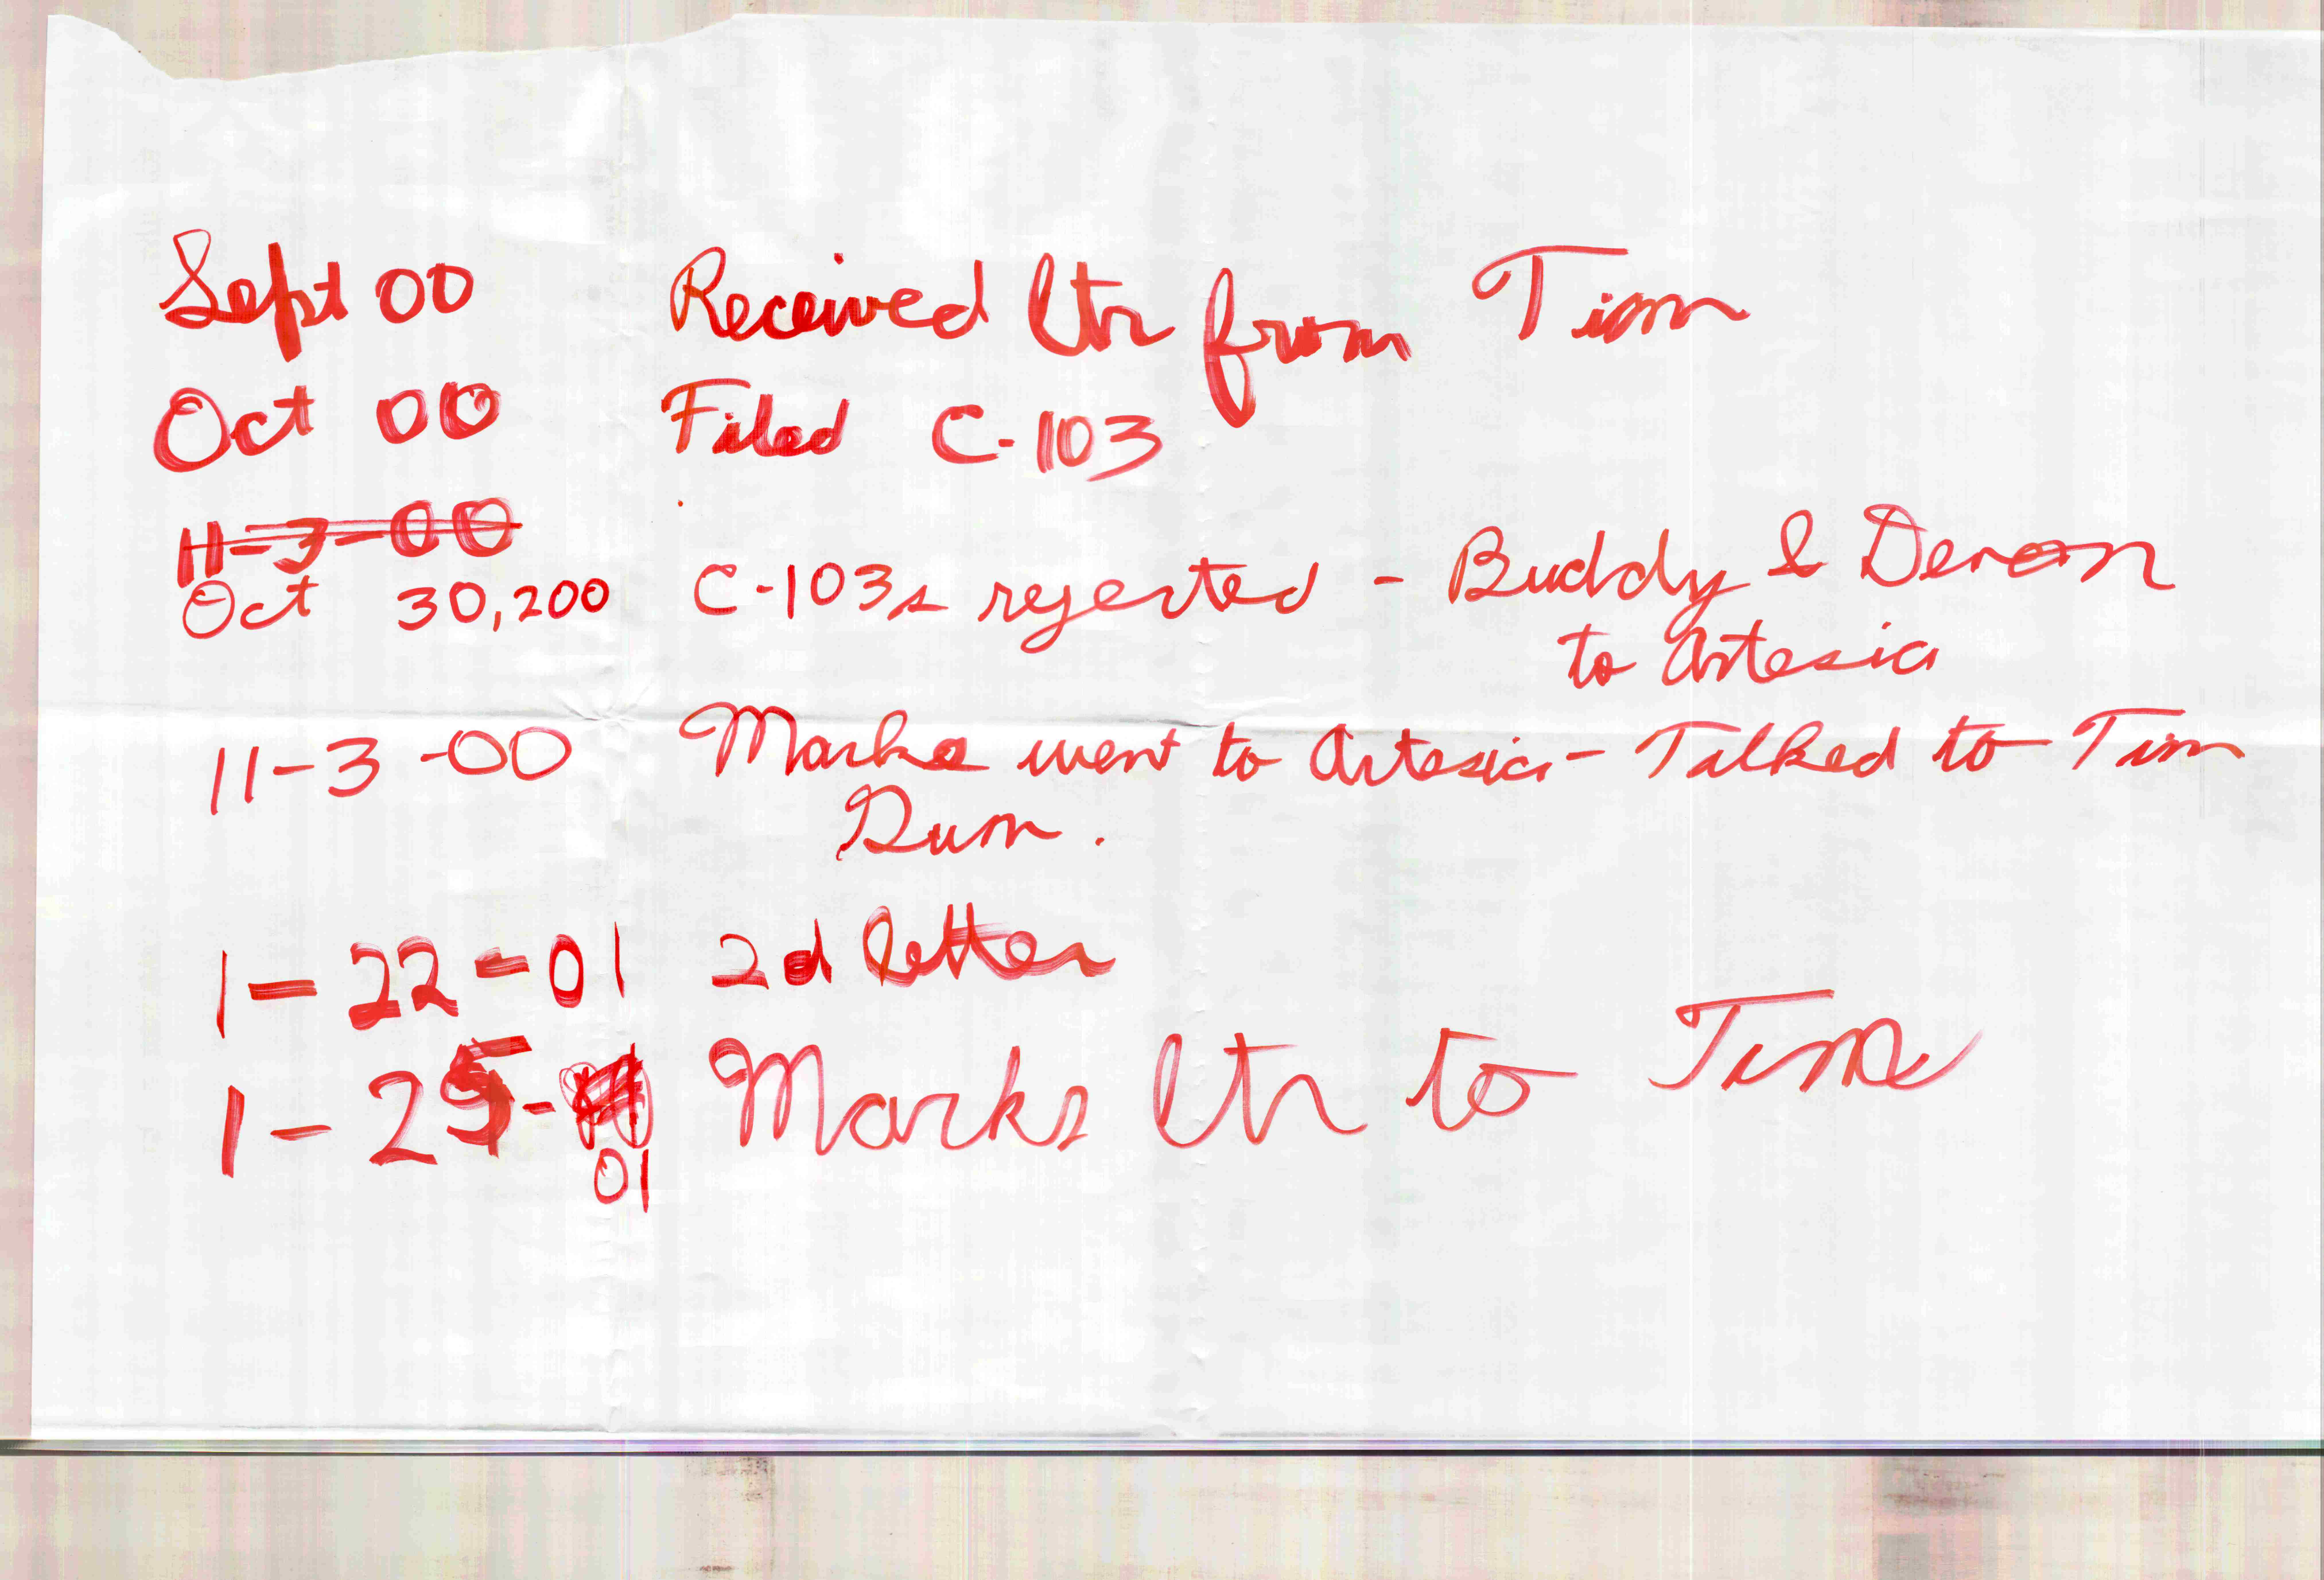 Sept 00 Received ltr from Tim
Oct 00 Filed C-103
11-3-00
Oct 30,200 C-103s rejected - Buddy & Deron
to Artesia
11-3-00 Marke went to Artesia - Talked to Tim
Gum.
1-22-01 2d letter
1-25- Marks ltr to Tim
01